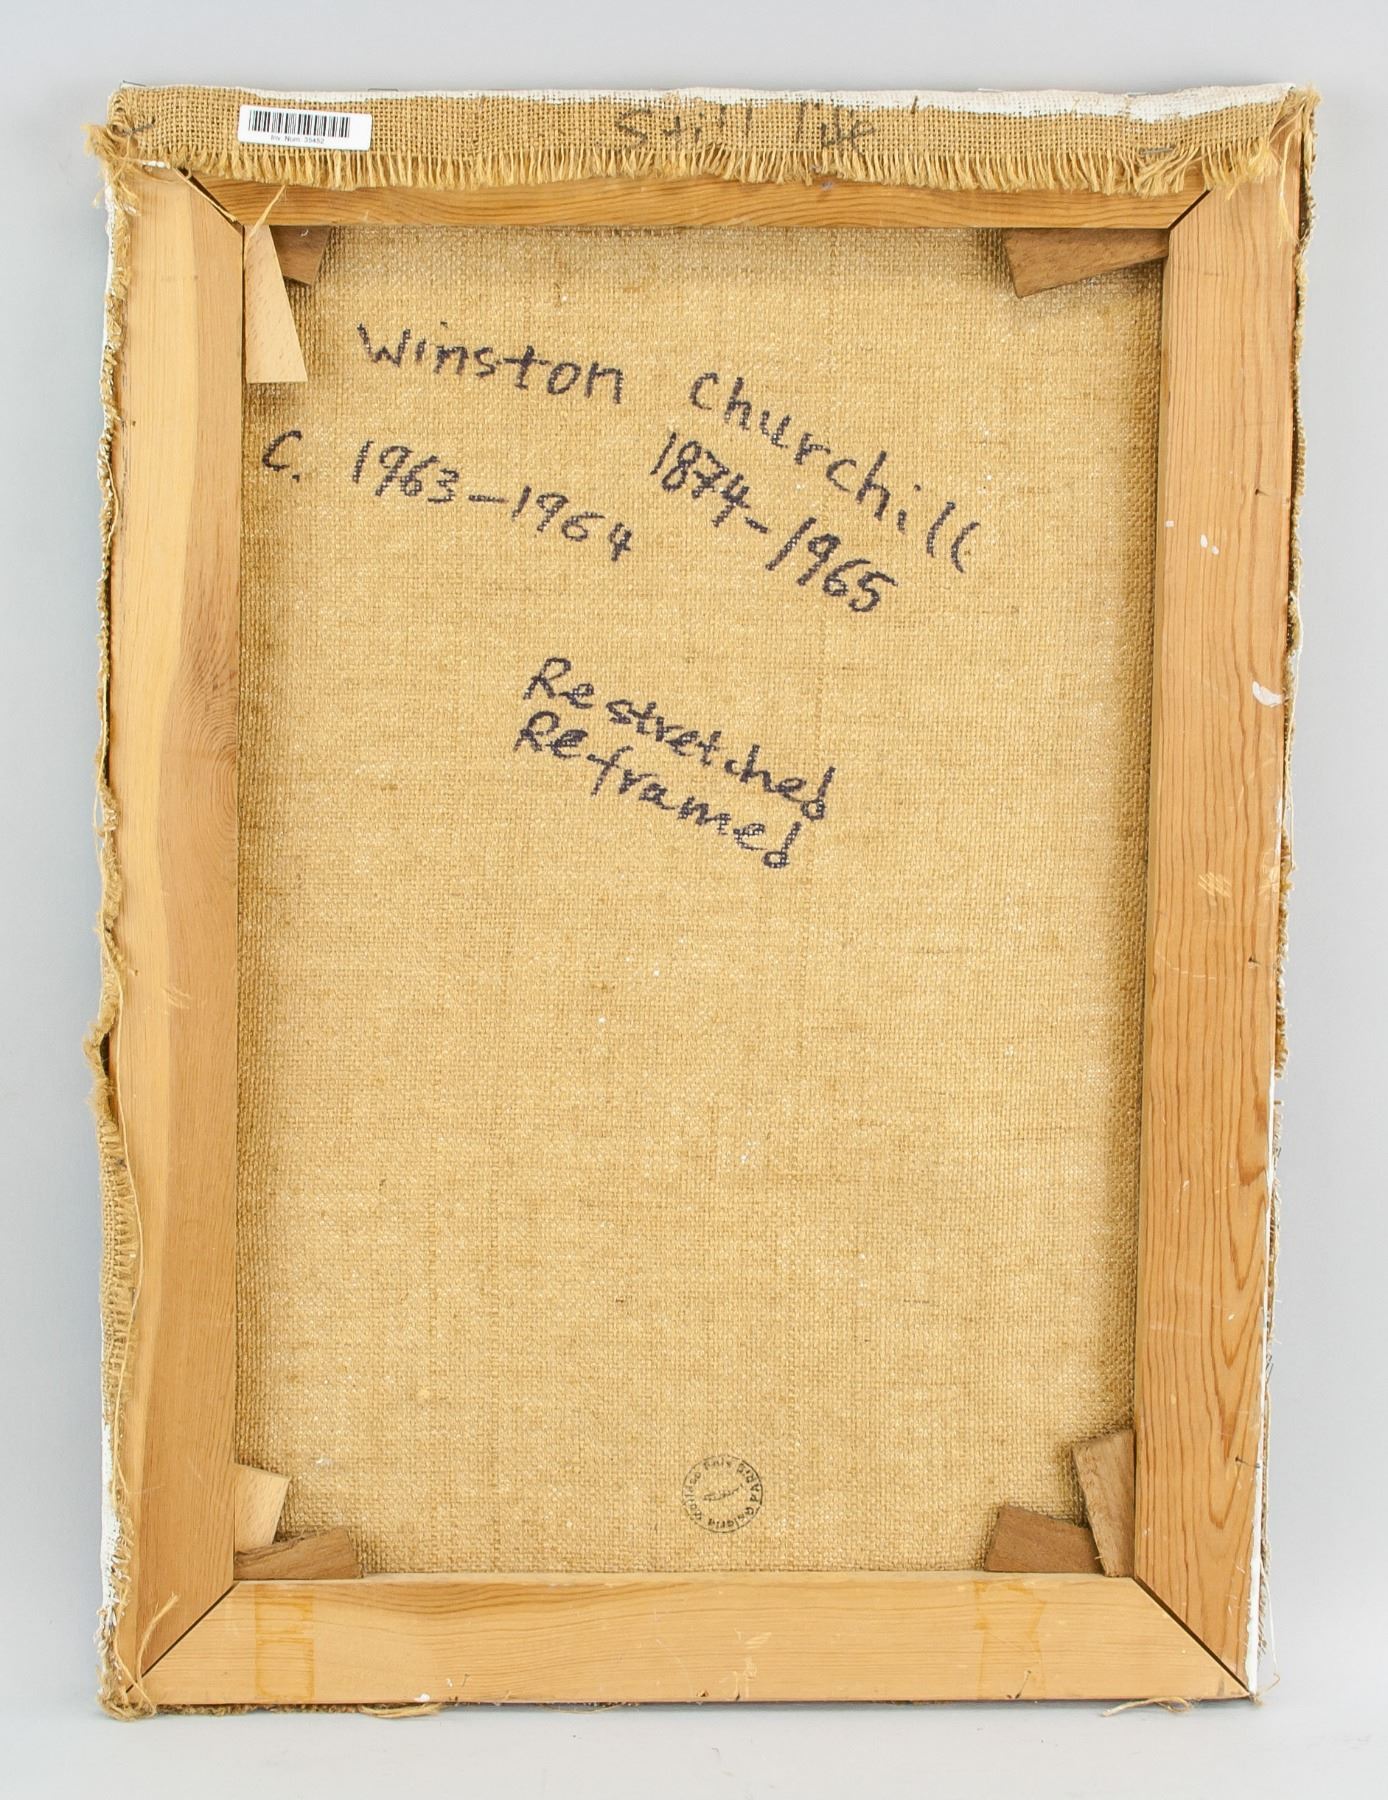 Still life
Inv. Num. 35452
Winston Churchill
1874-1965
C. 1963-1964
Restretched
Reframed